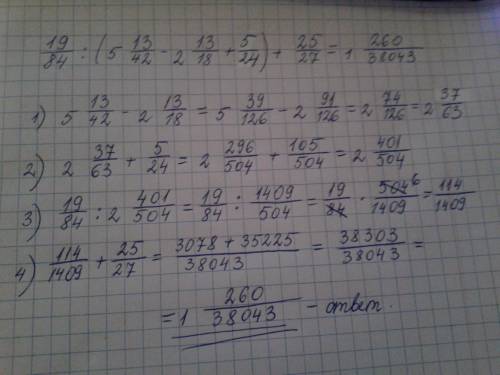 19/84 : (5 13/42 - 2 13/18 + 5/24) + 25/27 = 1 260/38043
1) 5 13/42 - 2 13/18 = 5 39/126 - 2 91/126 = 2 74/126 = 2 37/63
2) 2 37/63 + 5/24 = 2 296/504 + 105/504 = 2 401/504
3) 19/84 : 2 401/504 = 19/84 : 1409/504 = 19/84 · 504 6/1409 = 114/1409
4) 114/1409 + 25/27 = 3078 + 35225/38043 = 38303/38043 =
= 1 260/38043 - ответ.